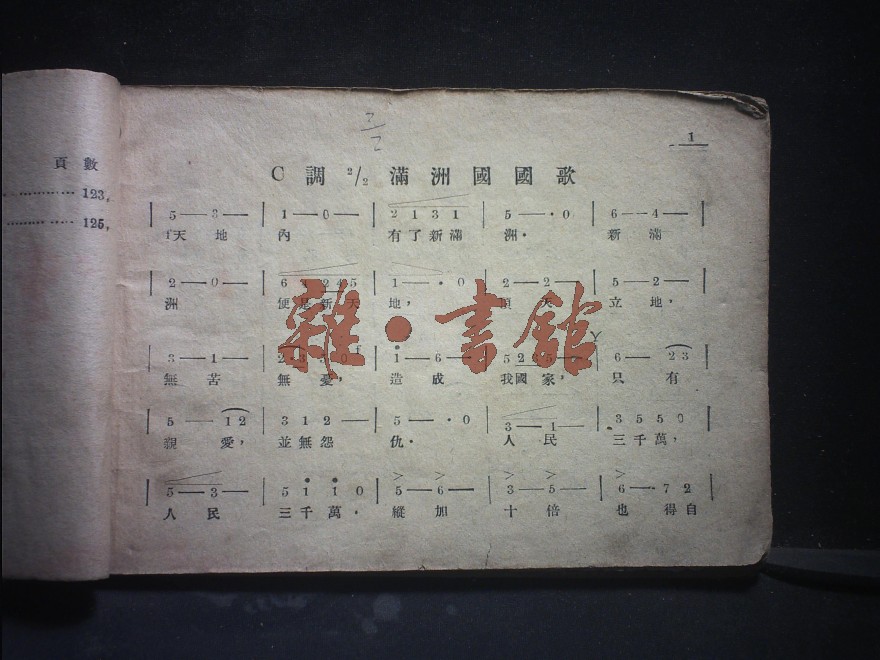 頁數
123,
125,
2/2
1
C調 2/2 滿洲國國歌
5 — 3 — | 1 — 0 — | 2 1 3 1 | 5 — · 0 | 6 — 4 —
f天地 內 有了新滿 洲· 新滿
2 — 0 — | 6 4 2 4 5 | 1 — · 0 | 2 — 2 — | 5 — 2 —
洲 便是新天 地, 頂天 立地,
3 — 1 — | 2 · 3 0 | 1 — 6 — | 5 2 | 6 — 2 3
無苦 無憂, 造成 我國家, 只有
5 — 1 2 | 3 1 2 — | 5 — · 0 | 3 — 1 — | 3 5 5 0
親愛, 並無怨 仇· 人民 三千萬,
5 — 3 — | 5 1 1 0 | 5 — 6 — | 3 — 5 — | 6 — · 7 2
人民 三千萬· 縱加 十倍 也得自
雜·書館